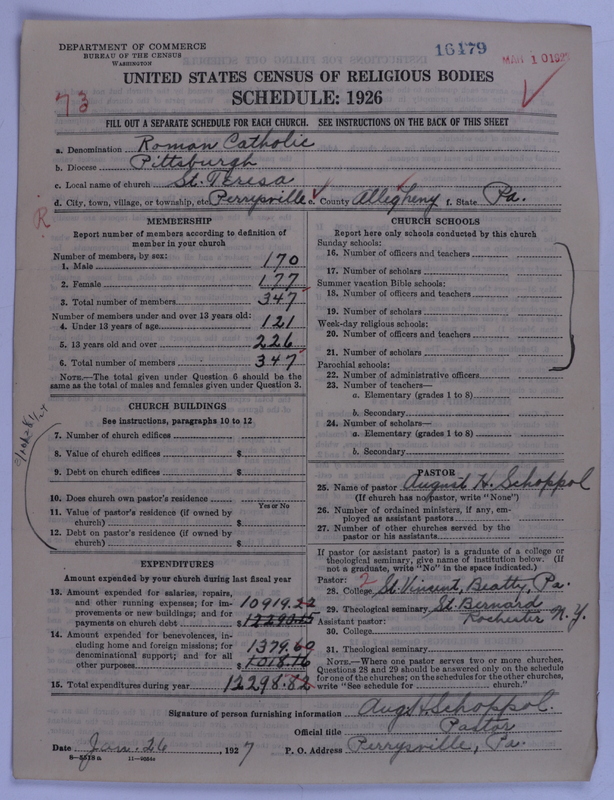 DEPARTMENT OF COMMERCE
BUREAU OF THE CENSUS
WASHINGTON
16179
MAR 10 192
UNITED STATES CENSUS OF RELIGIOUS BODIES
SCHEDULE: 1926
73
FILL OUT A SEPARATE SCHEDULE FOR EACH CHURCH. SEE INSTRUCTIONS ON THE BACK OF THIS SHEET
a. Denomination Roman Catholic
b. Diocese Pittsburgh
c. Local name of church St. Teresa
d. City, town, village, or township, etc. Perrysville e. County Allegheny f. State Pa.
R
MEMBERSHIP
Report number of members according to definition of
member in your church
Number of members, by sex:
1. Male 170
2. Female 177
3. Total number of members 347
Number of members under and over 13 years old:
4. Under 13 years of age 121
5. 13 years old and over 226
6. Total number of members 347
NOTE.—The total given under Question 6 should be the
same as the total of males and females given under Question 3.
CHURCH BUILDINGS
See instructions, paragraphs 10 to 12
7. Number of church edifices
8. Value of church edifices $
9. Debt on church edifices $
10. Does church own pastor's residence
Yes or No
11. Value of pastor's residence (if owned by
church) $
12. Debt on pastor's residence (if owned by
church) $
EXPENDITURES
Amount expended by your church during last fiscal year
13. Amount expended for salaries, repairs,
and other running expenses; for im-
provements or new buildings; and for
payments on church debt $
10919.22
14. Amount expended for benevolences, in-
cluding home and foreign missions; for
denominational support; and for all
other purposes $
1379.60
1018.76
15. Total expenditures during year 12298.82
CHURCH SCHOOLS
Report here only schools conducted by this church
Sunday schools:
16. Number of officers and teachers
17. Number of scholars
Summer vacation Bible schools:
18. Number of officers and teachers
19. Number of scholars
Week-day religious schools:
20. Number of officers and teachers
21. Number of scholars
Parochial schools:
22. Number of administrative officers
23. Number of teachers—
a. Elementary (grades 1 to 8)
b. Secondary
24. Number of scholars—
a. Elementary (grades 1 to 8)
b. Secondary
PASTOR
25. Name of pastor August H. Schoppol
(If church has no pastor, write "None")
26. Number of ordained ministers, if any, em-
ployed as assistant pastors
27. Number of other churches served by the
pastor or his assistants
If pastor (or assistant pastor) is a graduate of a college or
theological seminary, give name of institution below. (If
not a graduate, write "No" in the space indicated.)
Pastor: 2
28. College St. Vincent, Beatty, Pa.
29. Theological seminary St. Bernard
Rochester N. Y.
Assistant pastor:
30. College
31. Theological seminary
NOTE.—Where one pastor serves two or more churches,
Questions 28 and 29 should be answered only on the schedule
for one of the churches; on the schedules for the other churches,
write "See schedule for church."
Signature of person furnishing information Aug. H. Schoppol.
Official title Pastor
Date Jan. 26, 1927 P. O. Address Perrysville, Pa.
6—5518a 11—9664